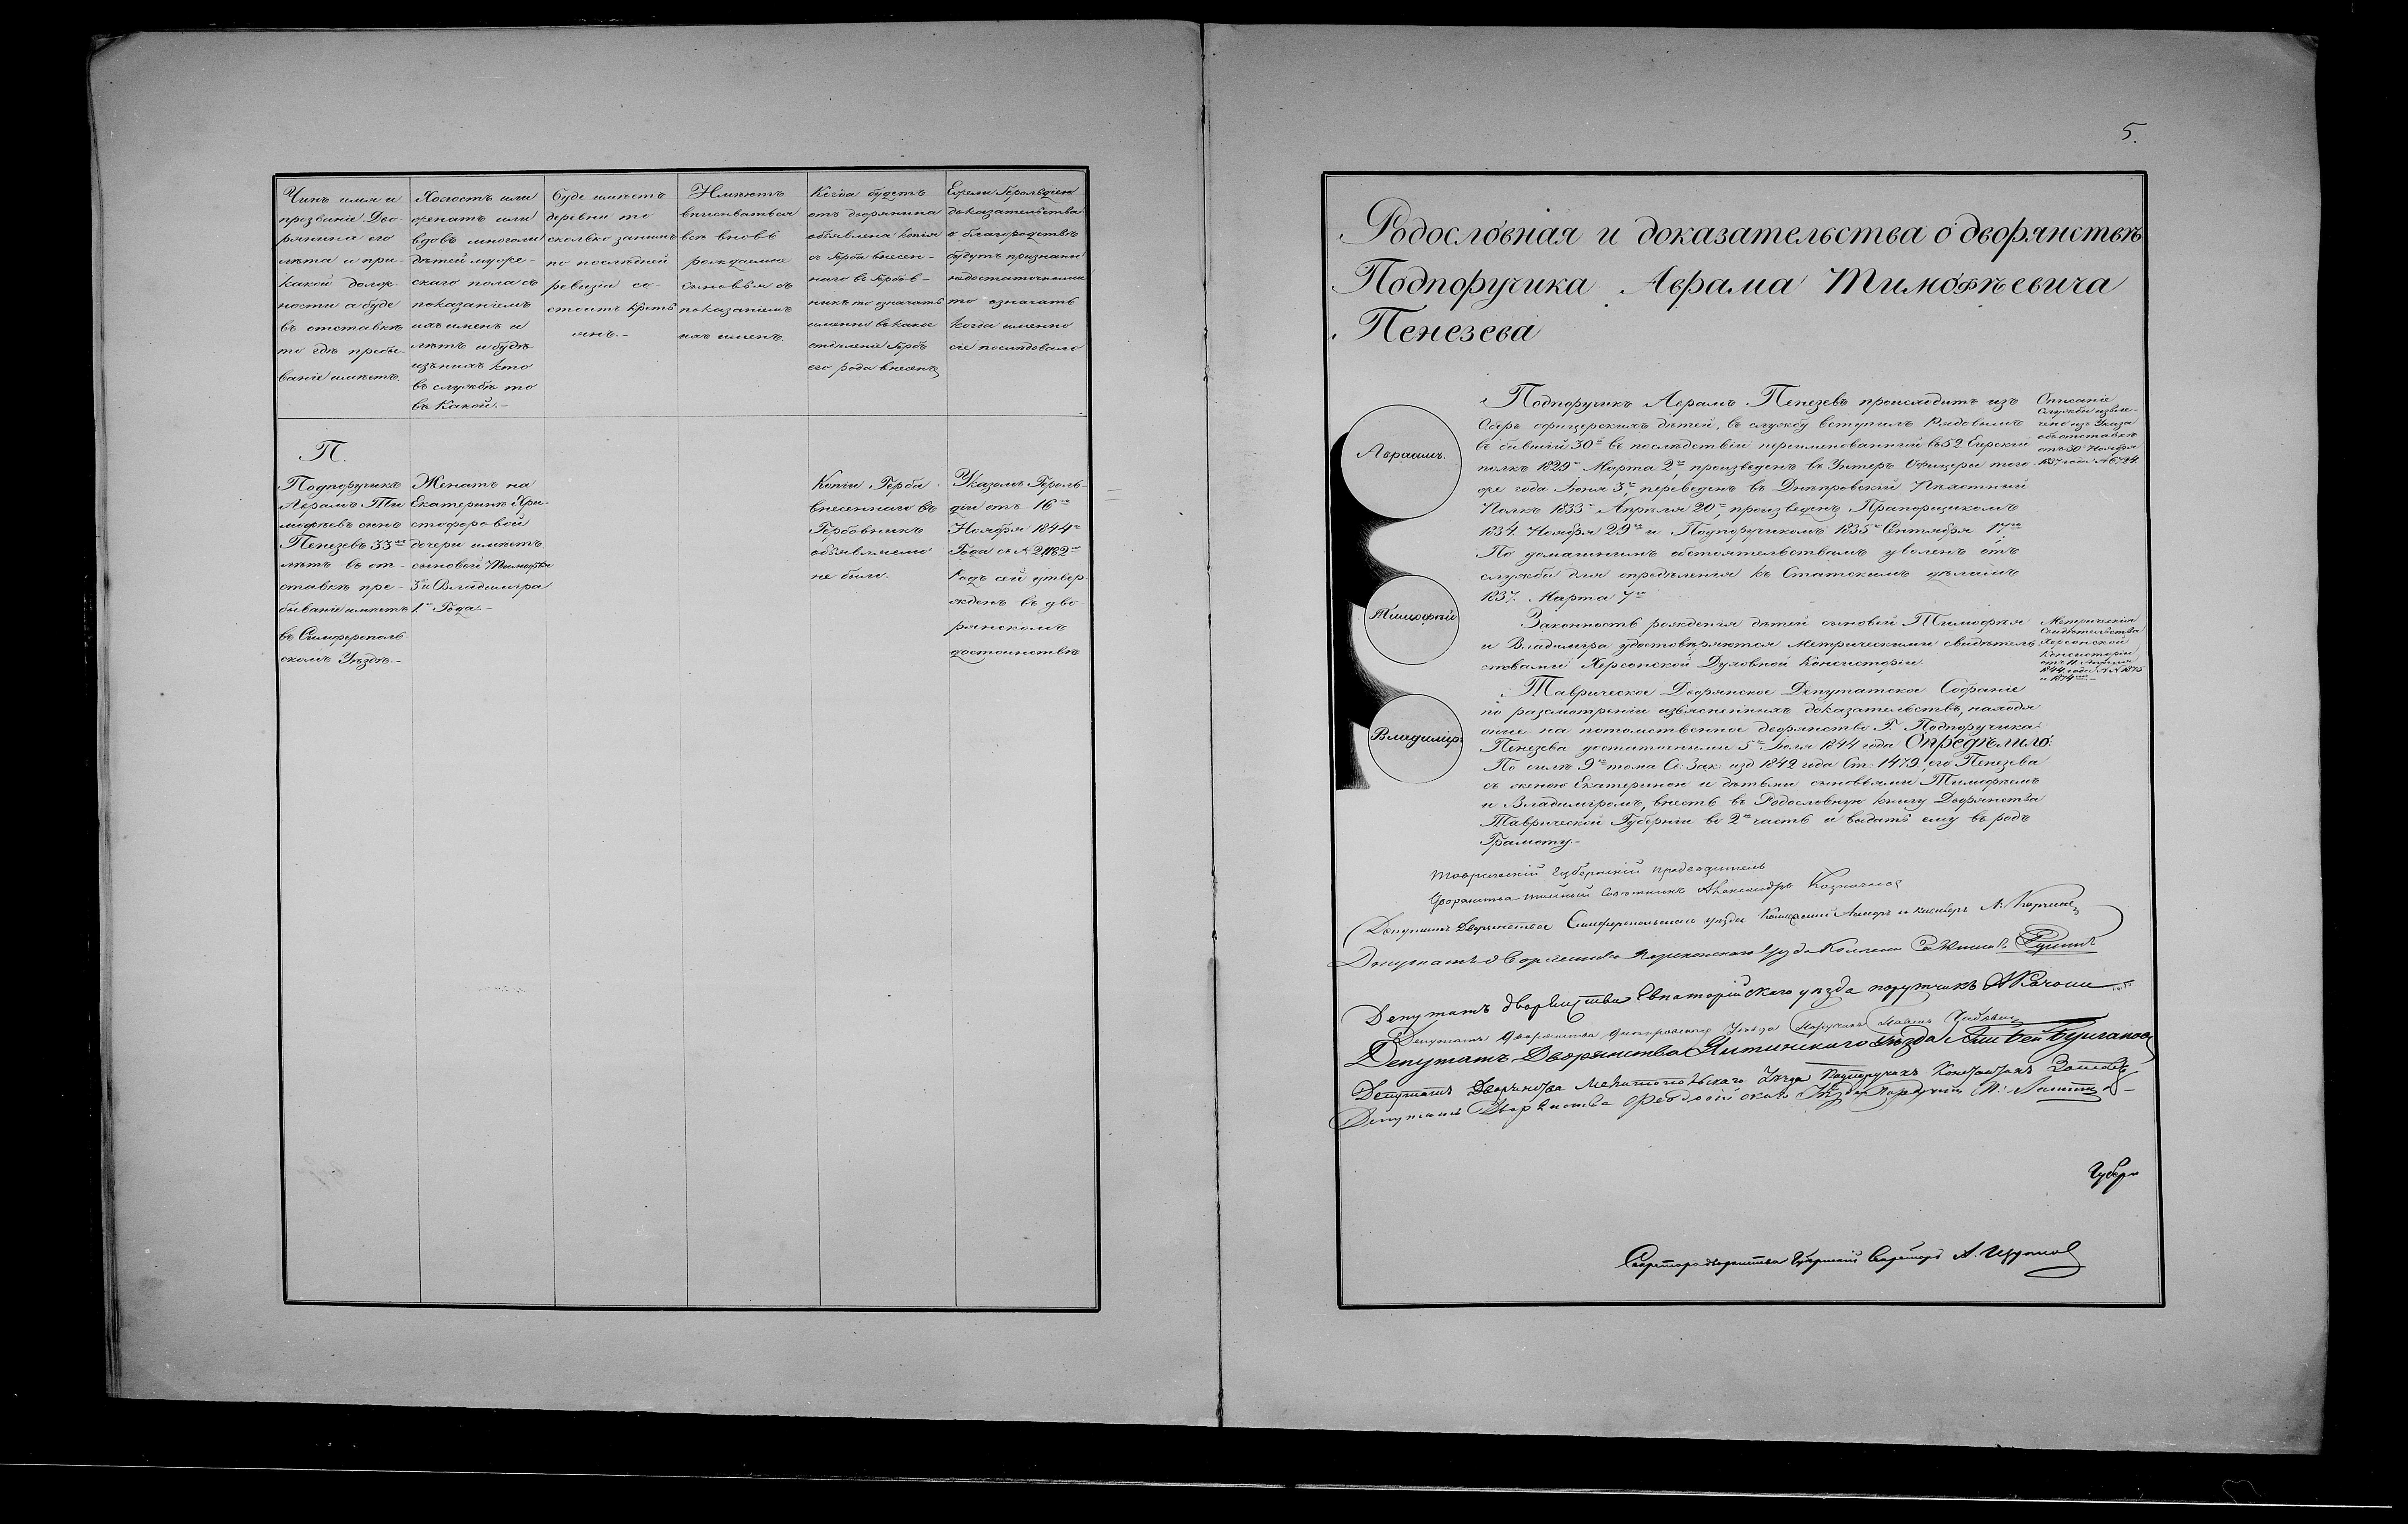 Чинъ имя и
прозваніе Дво-
рянина его
лѣта и при
какой долж-
ности а буде
въ отставкѣ
то гдѣ пребы-
ваніе имѣетъ.
Холостъ или
женатъ или
вдовъ многоли
дѣтей муже-
скаго пола съ
показаніемъ
ихъ именъ и
лѣтъ и будѣ
изъ нихъ кто
въ службѣ то
въ Какой.-
буде имѣетъ
деревни то
сколько занимъ
по послѣдней
ревизіи со-
стоитъ крѣсть
янъ.-
Имѣютъ
вписываться
всѣ вновь
рождаемые
сыновья съ
показаніемъ
ихъ именъ.
Когда будетъ
отъ дворянина
объявлена копія
съ Герба внесен-
наго въ Гербов-
никъ то означать
именно въ какое
отдѣленіе Гербъ
его рода внесенъ
Ежели Герольдіею
доказательства
о благородствѣ
будутъ признаны
недостаточными
то означать
когда именно
сіе послѣдовало
П.
Подпоручикъ
Аврамъ Ти
мофѣевъ сынъ
Пенезевъ 33хъ
лѣтъ въ от-
ставкѣ пре-
бываніе имѣетъ
въ Симферополь
скомъ Уѣздѣ.-
Женатъ на
Екатеринѣ Хри-
стофоровой
дочери имѣетъ
сыновей Тимофѣя
3хъ и Владиміра
1го Года.-
Копіи Герба
внесеннаго въ
Гербовникъ
объявляемо
не было.
Указомъ Героль-
діи отъ 16го
Ноября 1844го
Года съ №
Родъ сей утвер-
жденъ въ дво
рянскомъ
достоинствѣ
5.
Родословная и доказательства о дворянствѣ
Подпоручика Аврама Тимофѣевича
Пенезева
Авраамъ.
Тимофѣй
Владиміръ
Подпоручикъ Аврамъ Пенезевъ происходитъ изъ
Оберъ офицерскихъ дѣтей, въ службу вступилъ Рядовымъ
въ бывшій 30й въ послѣдствіи переименованный въ 52 Егерскій
полкъ 1829го Марта 2го произведенъ въ Унтеръ Офицеры того
же года Іюня 3го, переведенъ въ Днѣпровскій Пѣхотный
Полкъ 1833го Апрѣля 20го, произведенъ Прапорщикомъ
1834. Ноября 29го и Подпоручикомъ 1835го Сентября 17го
По домашнимъ обстоятельствамъ уволенъ отъ
службы для опредѣленія къ Статскимъ дѣламъ
1837. Марта 7го
Законность рожденія дѣтей сыновей Тимофѣя
и Владиміра удостовѣряются Метрическими свидѣтель-
ствами Херсонской Духовной Консисторіи.
Таврическое Дворянское Депутатское Собраніе
по разсмотреніи изъясненныхъ доказательствъ, находя
оные на потомственное дворянство Г. Подпоручика
Пенезева достаточными 5го Іюля 1844 года Опредѣлило:
По силѣ 9го тома Св: Зак: изд 1842 года Ст: 1479, его Пенезева
съ женою Екатериною и дѣтьми сыновьями Тимофѣемъ
и Владиміромъ, внесть въ Родословную книгу Дворянства
Таврической Губерніи во 2ю часть и выдать ему въ родъ
Грамоту.-
Описаніе
службы извле-
чено изъ Указа
объ отставкѣ
отъ 30го Ноября
1837 года № 6724.
Метрическія
Свидѣтельства
Херсонской
Консисторіи
отъ 11 Апрѣля
1844 года № № 1873
и 1874
Таврическій Губернскій Предводитель
Дворянства тайный Совѣтникъ Александръ Казначеевъ
Депутатъ Дворянства Симферопольскаго уѣзда
Депутатъ дворянства Перекопскаго уѣзда
Депутатъ дворянства Евпаторійскаго уѣзда поручикъ
Депутатъ Дворянства Днѣпровскаго Уѣзда Поручикъ
Депутатъ Дворянства Ялтинскаго уѣзда
Депутатъ Дворянства Мелитопольскаго Уѣзда Подпоручикъ Константинъ
Депутатъ Дворянства Феодосійскаго Уѣзда
Губерн
Секретарь дворянства Губернскій Секретарь А.